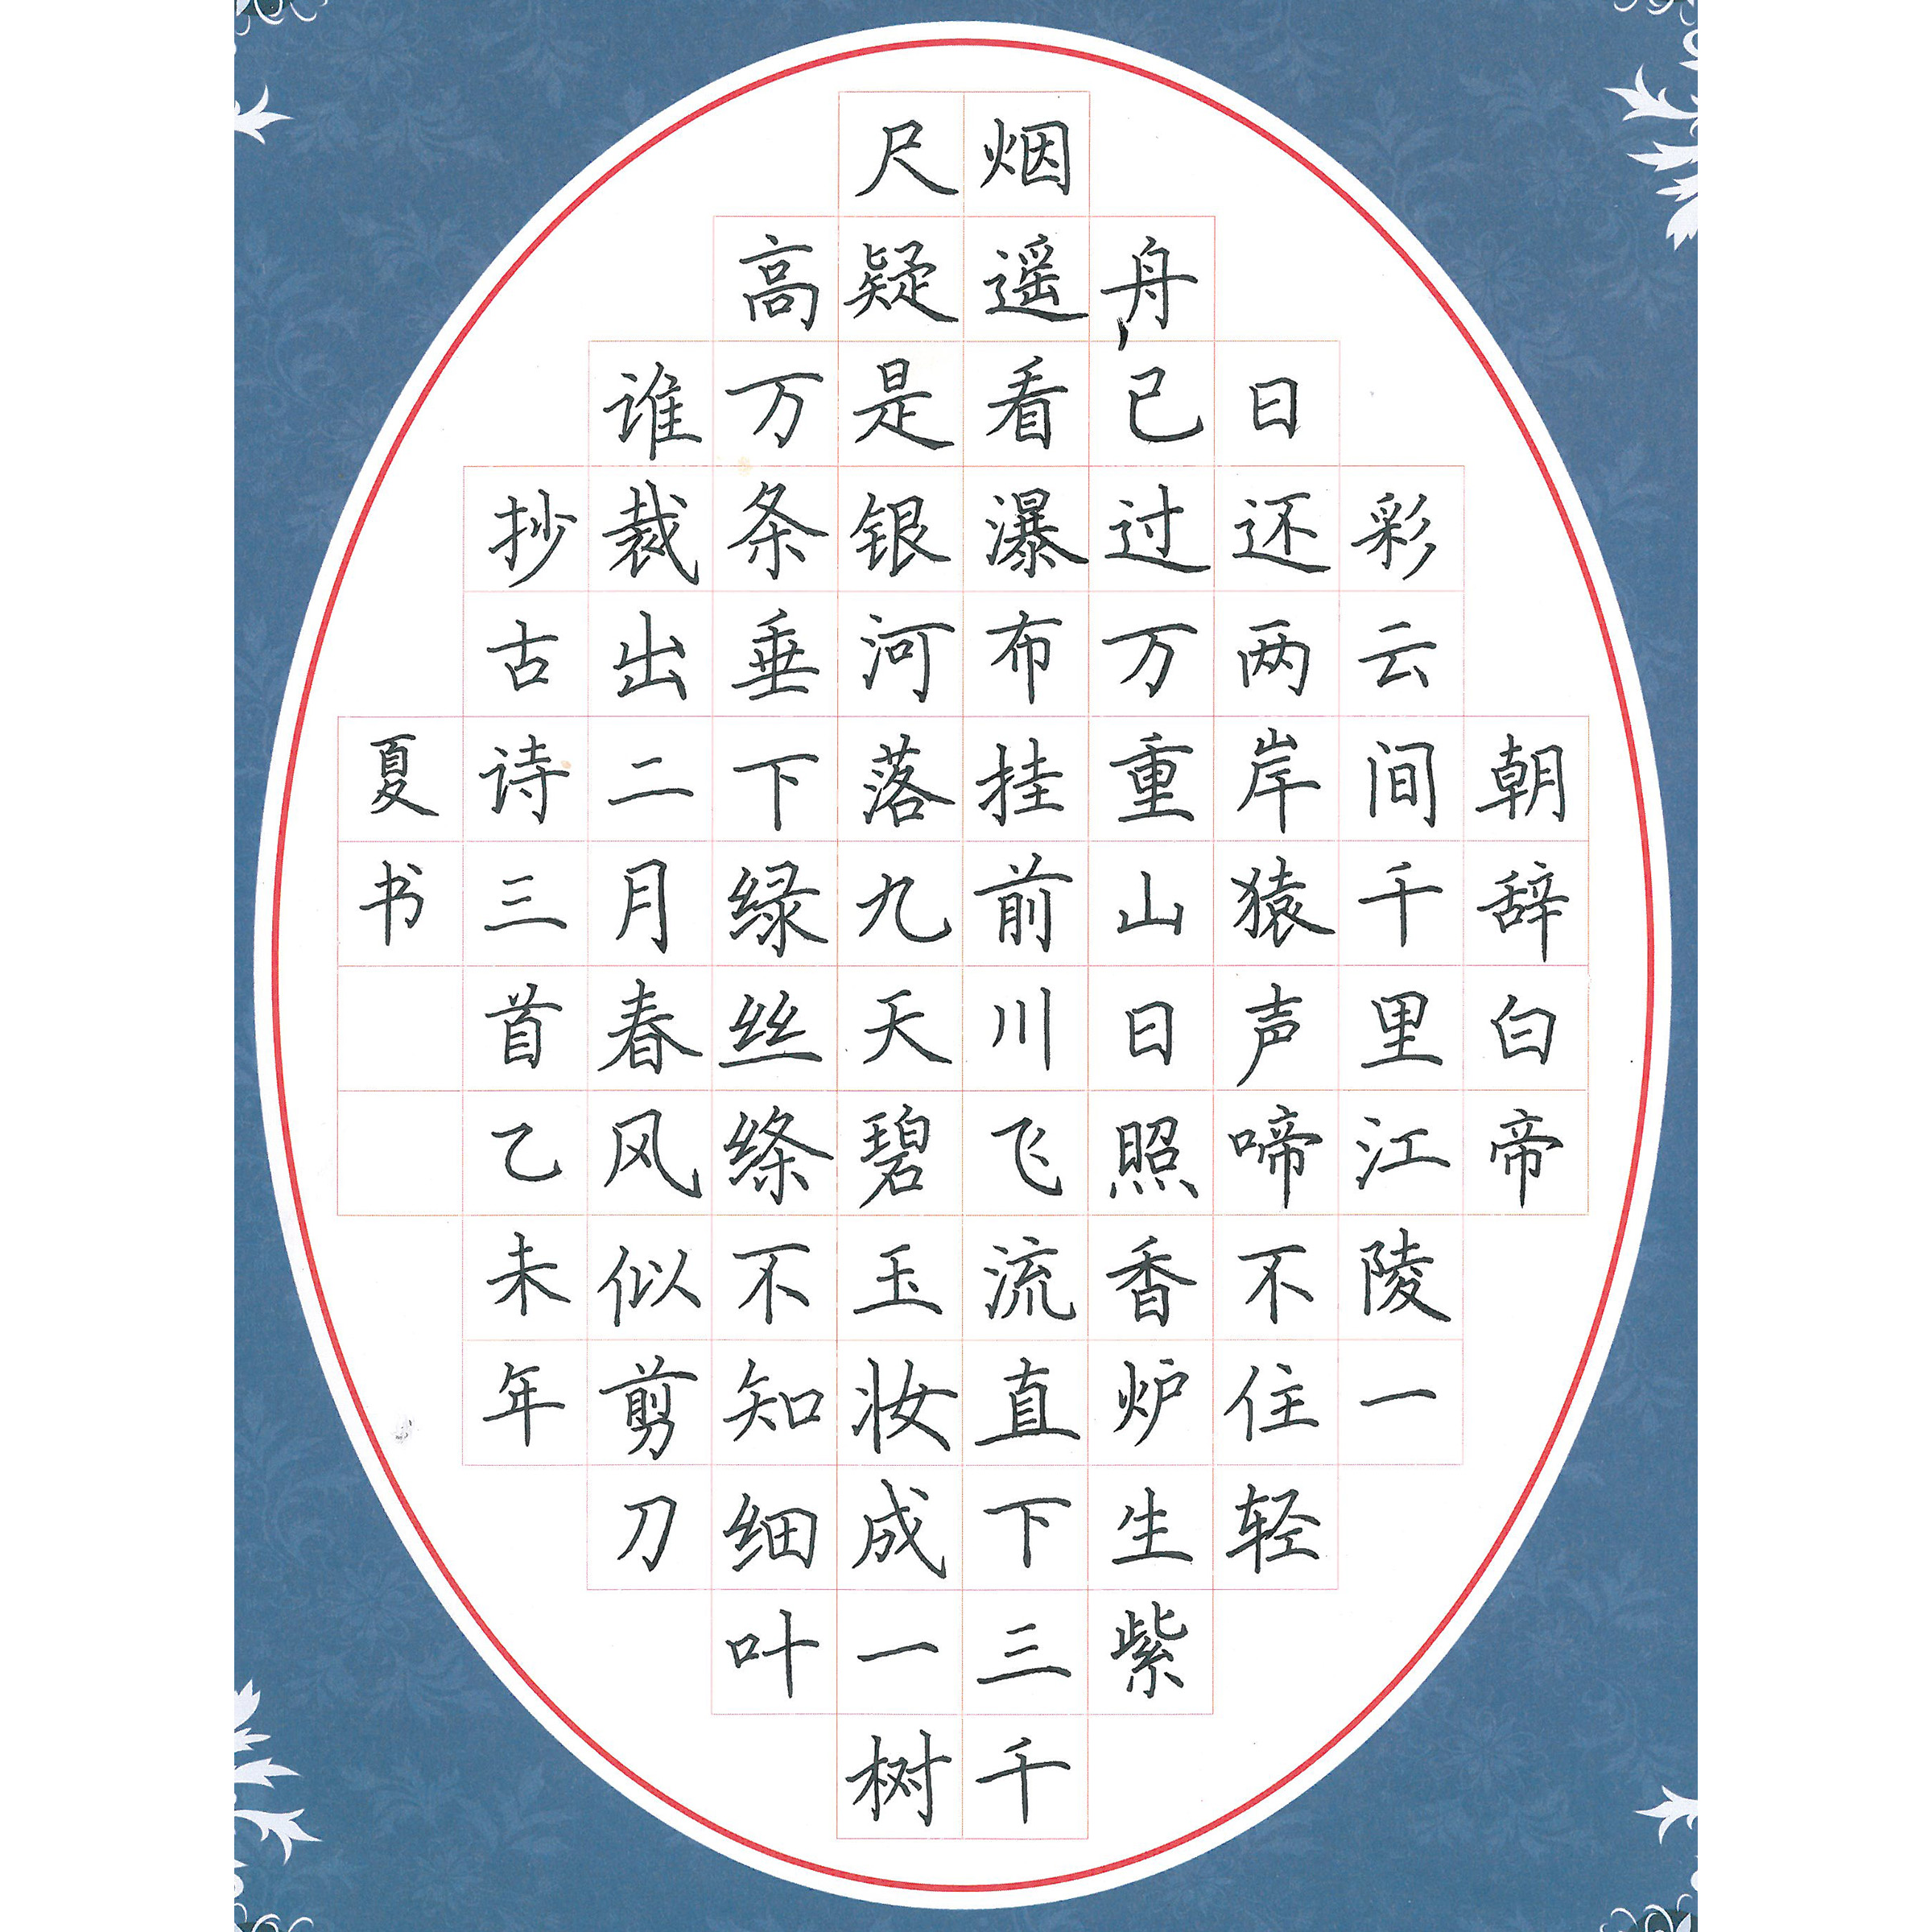 朝辞白帝
彩云间千里江陵一
日还两岸猿声啼不住轻
舟已过万重山日照香炉生紫
烟遥看瀑布挂前川飞流直下三千
尺疑是银河落九天碧玉妆成一树
高万条垂下绿丝绦不知细叶
谁裁出二月春风似剪刀
抄古诗三首乙未年
夏书